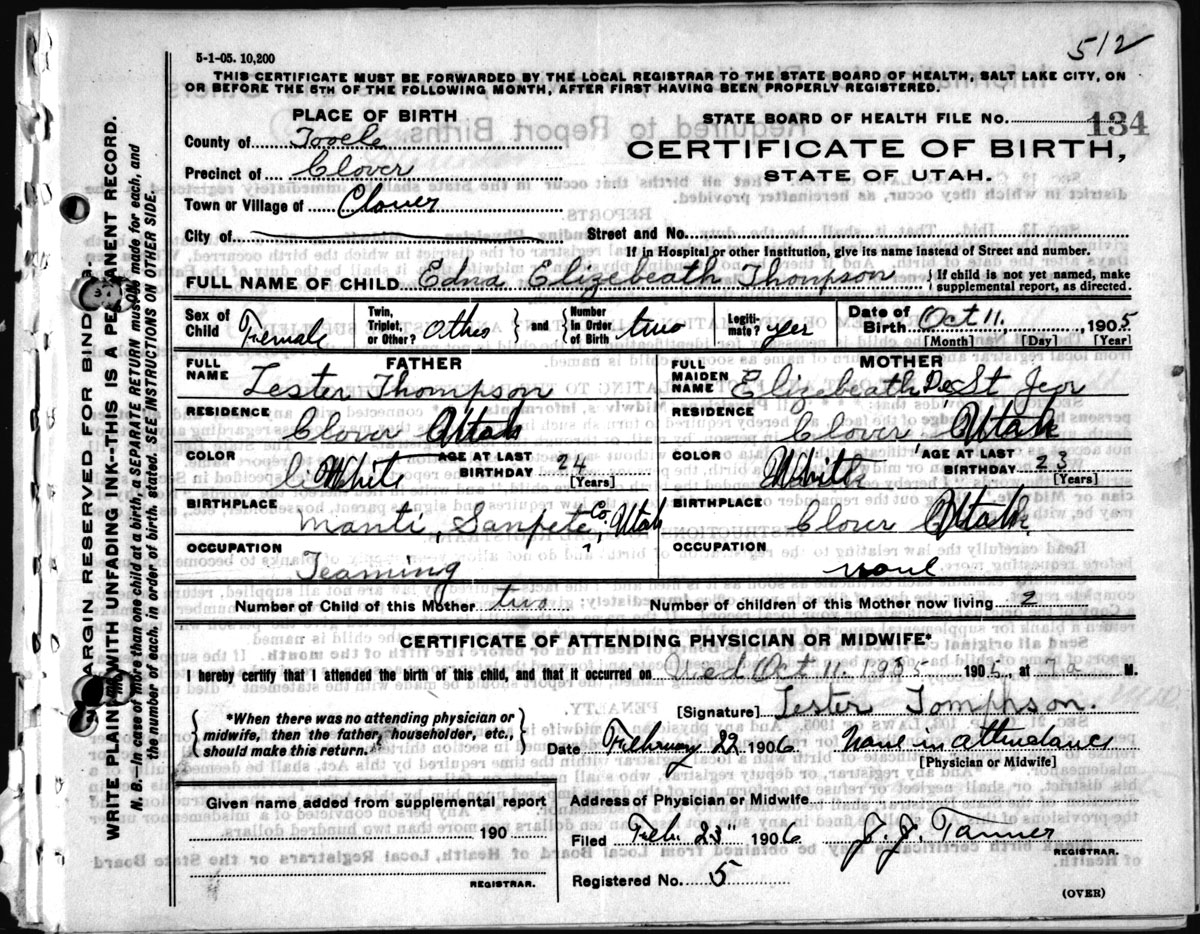 512
5-1-05. 10,200
THIS CERTIFICATE MUST BE FORWARDED BY THE LOCAL REGISTRAR TO THE STATE BOARD OF HEALTH, SALT LAKE CITY, ON
OR BEFORE THE 5TH OF THE FOLLOWING MONTH, AFTER FIRST HAVING BEEN PROPERLY REGISTERED.
PLACE OF BIRTH
County of Tooele
Precinct of Clover
Town or Village of Clover
City of
STATE BOARD OF HEALTH FILE NO. 134
CERTIFICATE OF BIRTH,
STATE OF UTAH.
Street and No.
If in Hospital or other Institution, give its name instead of Street and number.
FULL NAME OF CHILD Edna Elizebeath Thompson
If child is not yet named, make
supplemental report, as directed.
Sex of Child Female
Twin, Triplet, or Other?
and
Number in Order of Birth two
Legitimate? yes
Date of Birth Oct 11. , 1905
[Month] [Day] [Year]
FATHER
FULL NAME Lester Thompson
RESIDENCE Clover Utah
COLOR White
AGE AT LAST BIRTHDAY 24
[Years]
BIRTHPLACE Manti, Sanpete Co, Utah
OCCUPATION Teaming
MOTHER
FULL MAIDEN NAME Elizebeath St Jeor
RESIDENCE Clover Utah
COLOR White
AGE AT LAST BIRTHDAY 23
[Years]
BIRTHPLACE Clover Utah
OCCUPATION
Number of Child of this Mother two
Number of children of this Mother now living 2
CERTIFICATE OF ATTENDING PHYSICIAN OR MIDWIFE*
I hereby certify that I attended the birth of this child, and that it occurred on Wed Oct 11. 1905 1905, at M.
*When there was no attending physician or
midwife, then the father, householder, etc.,
should make this return.
[Signature] Lester Tomphson.
Date February 22 1906. None in attendance
[Physician or Midwife]
Given name added from supplemental report
190
REGISTRAR.
Address of Physician or Midwife
Filed Feb. 23" 1906 J. J. Tanner
REGISTRAR.
Registered No. 5
(OVER)
MARGIN RESERVED FOR BINDING.
WRITE PLAINLY WITH UNFADING INK--THIS IS A PERMANENT RECORD.
N. B.—In case of more than one child at a birth, a SEPARATE RETURN must be made for each, and
the number of each, in order of birth, stated. SEE INSTRUCTIONS ON OTHER SIDE.